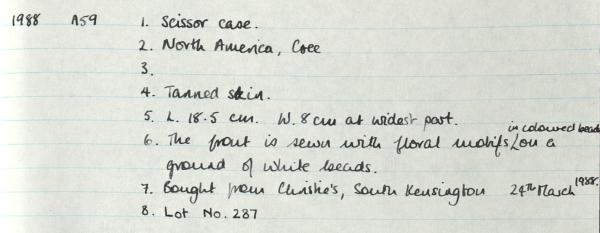 1988 A59 1. Scissor case.
2. North America, Cree
3.
4. Tanned skin.
5. L. 18.5 cm. W. 8 cm at widest part.
6. The front is sewn with floral motifs/in coloured beads on a
ground of white beads.
7. Bought from Christie's, South Kensington 24th March 1988.
8. Lot No. 287